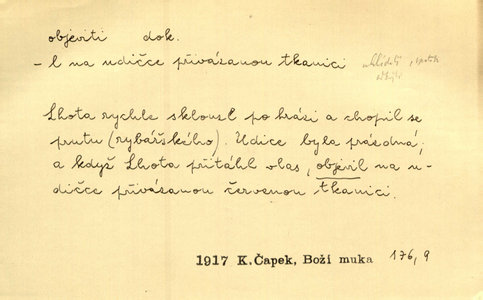 objeviti dok.
– l na udičce přivázanou tkanici
Lhota rychle sklouzl po hrázi a chopil se
prutu (rybářského). Udice byla prázdná;
a když Lhota přitáhl vlas, objevil na u-
dičce přivázanou červenou tkanici.
1917 K.Čapek, Boží muka 176,9